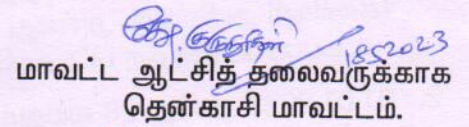 18.5.2023
மாவட்ட ஆட்சித் தலைவருக்காக
தென்காசி மாவட்டம்.